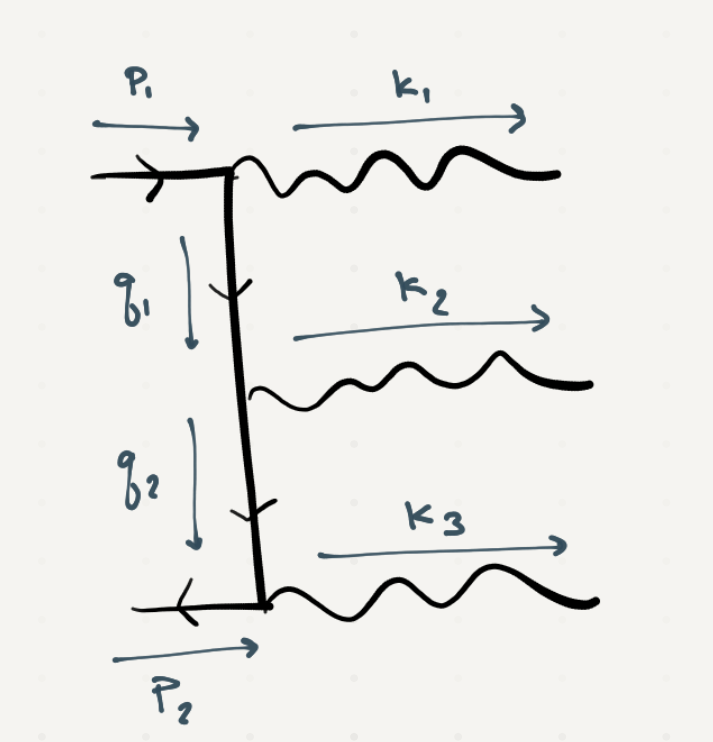 P₁
k₁
q₁
k₂
q₂
k₃
P₂